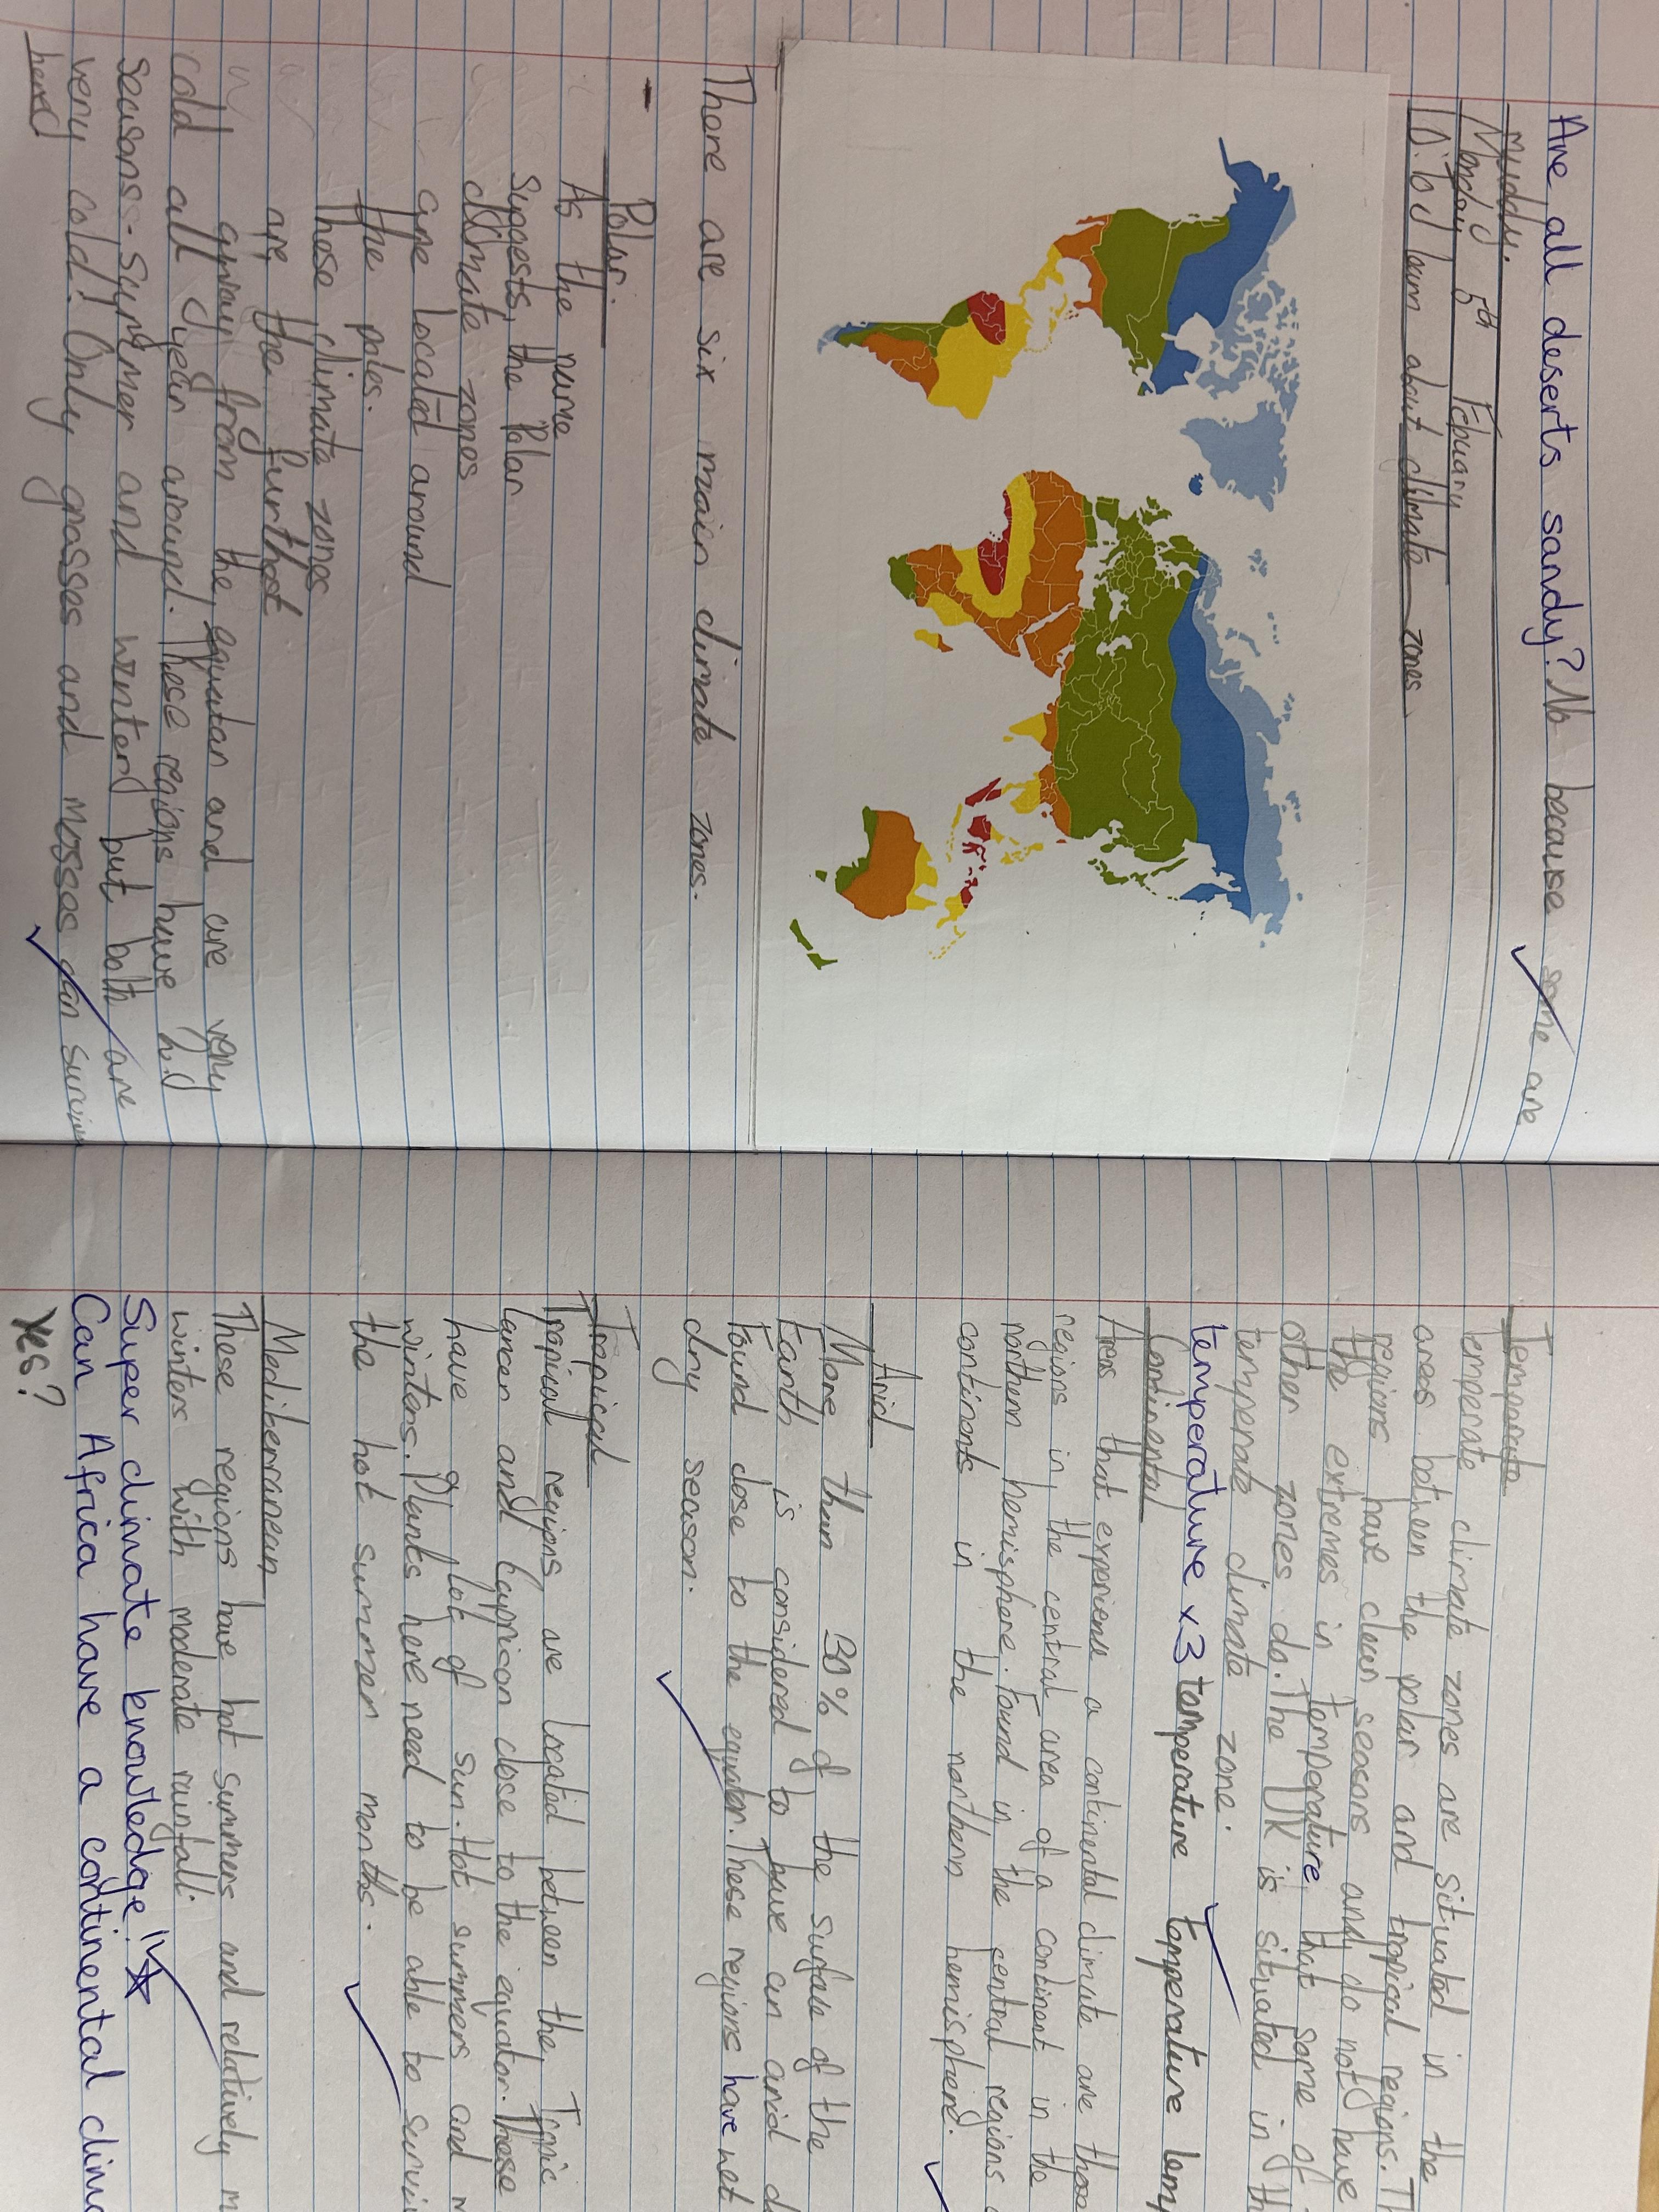 Are all deserts sandy? No because some are
muddy.
Monday 5th Febuary
L.O. To learn about climate zones
There are six main climate zones.
Polar.
As the name
suggests, the Polar
climate zones
are located around
the poles.
These climate zones
are the furthest
away from the equator and are very
cold all year around. These regions have
seasons- summer and winter, but both are
very cold! Only grasses and mosses can survive
here!
Temperate
Temperate climate zones are situated in the
areas between the polar and tropical regions.
regions have clear seasons and do not have
the extremes in temperature that some of
other zones do. The UK is situated in th
temperate climate zone.
temperature x3 temperature temperature temp
Continental
Areas that experience a continental climate are those
regions in the central area of a continent in the
northern hemisphere. Found in the central regions
continents in the northern hemisphere.
Arid
More than 30% of the surface of the
Earth is considered to have an arid
Found close to the equator. These regions have wet
dry season.
Tropical
Tropical regions are located between the Tropic
Cancer and Capricon close to the equator. These
have a lot of sun. Hot summers and
winters. Plants here need to be able to survi
the hot summer months.
Mediterranean
These regions have hot summers and relatively m
winters with moderate rainfall.
Super climate knowledge!
Can Africa have a continental clima
Yes?